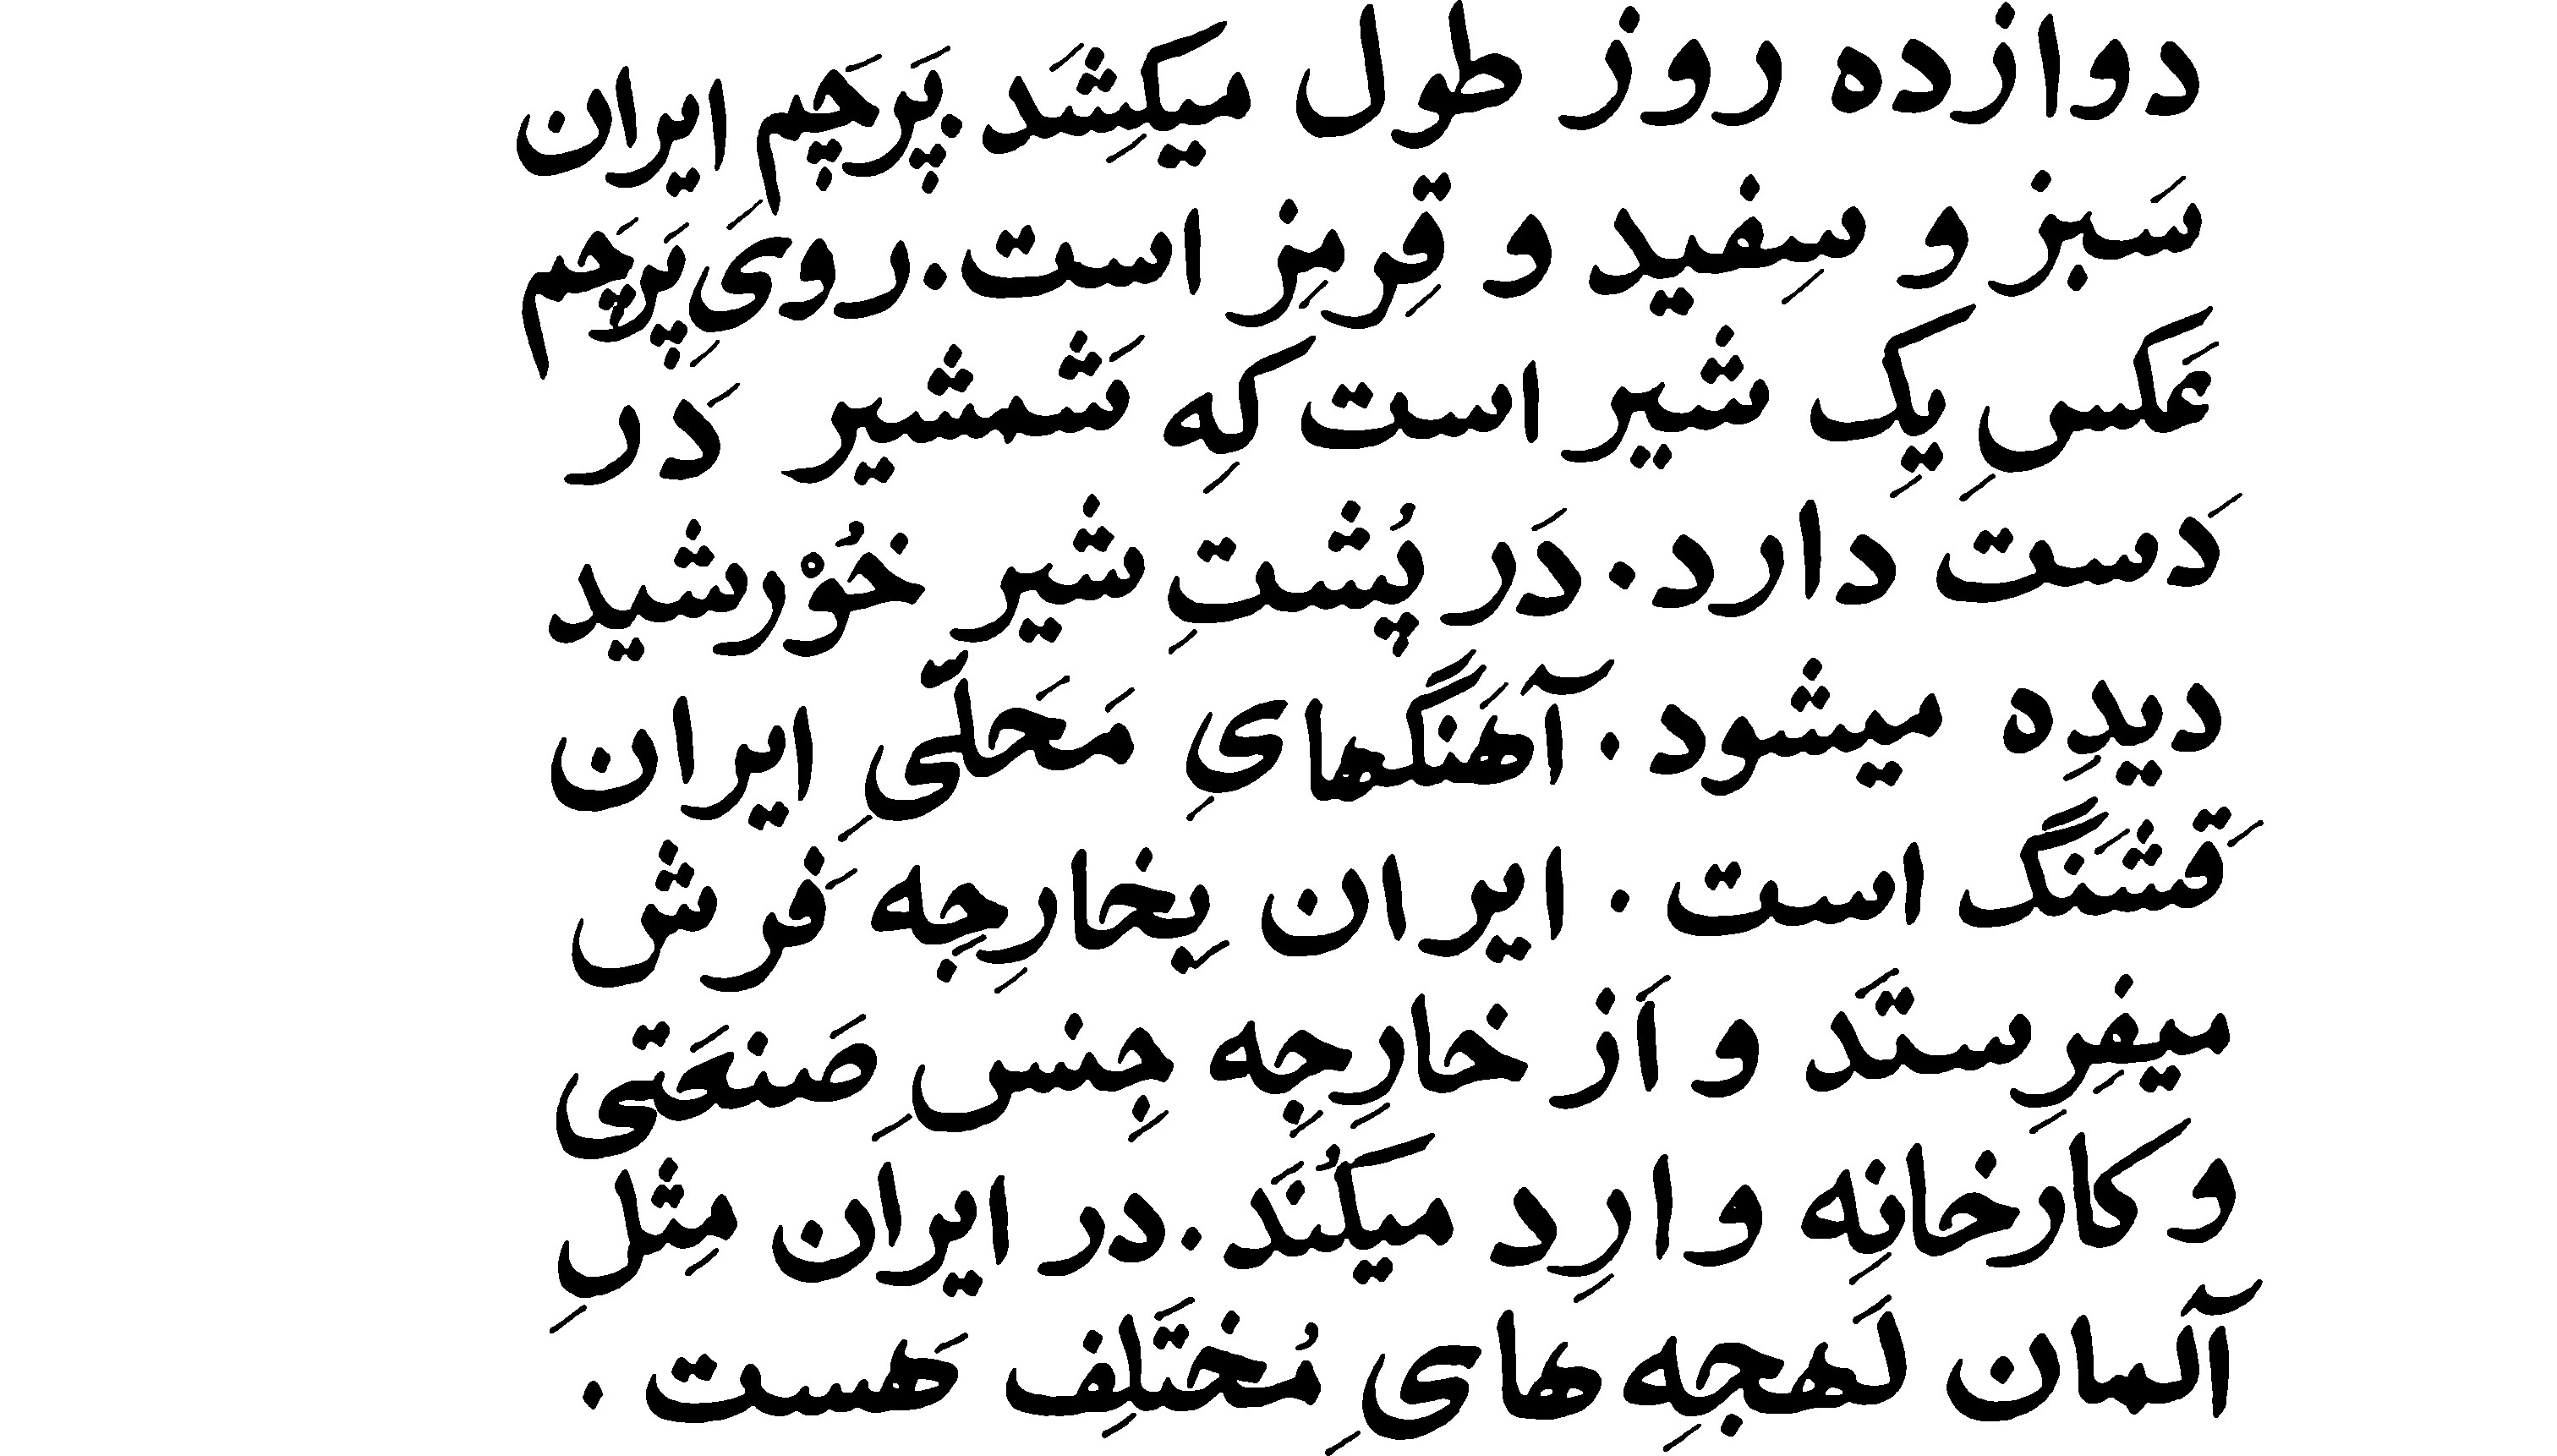 دوازده روز طول میکِشَد. پَرچَم ایران
سَبز و سِفید و قِرمِز است. رویَِ پَرچَم
عَکسِ یِک شیر است کِه شَمشیر دَر
دَست دارد. دَر پُشتِ شیر خُوْرشید
دیدِه میشود. آهَنگهایِ مَحَلّیِ ایران
قَشَنگ است. ایران بِخارِجِه فَرش
میفِرِستَد و اَز خارِجِه جِنسِ صَنعَتی
و کارخانِه وارِد میکُنَد. در ایران مِثلِ
آلمان لَهجِه هایِ مُختَلِف هَست.